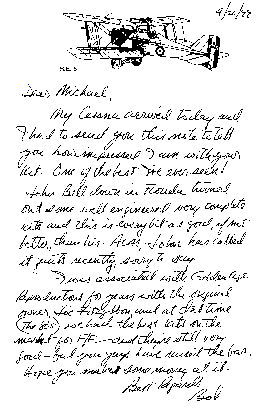 9/21/99
S.E.5
Dear Michael,
My Cessna arrived today and
I had to send you this note to tell
you how impressed I am with your
kit. One of the best I've ever seen!
John Bell down in Florida turned
out some well engineered very complete
kits and this is every bit as good, if not
better, than his. Alas, John has called
it quits recently, sorry to say.
I was associated with Golden Age
Reproductions for years with the original
owner, and at that time
we had the best kits on the
market for FF. — and they're still very
good — but you guys have raised the bar.
Hope you make some money at it.
Best Regards
Bob